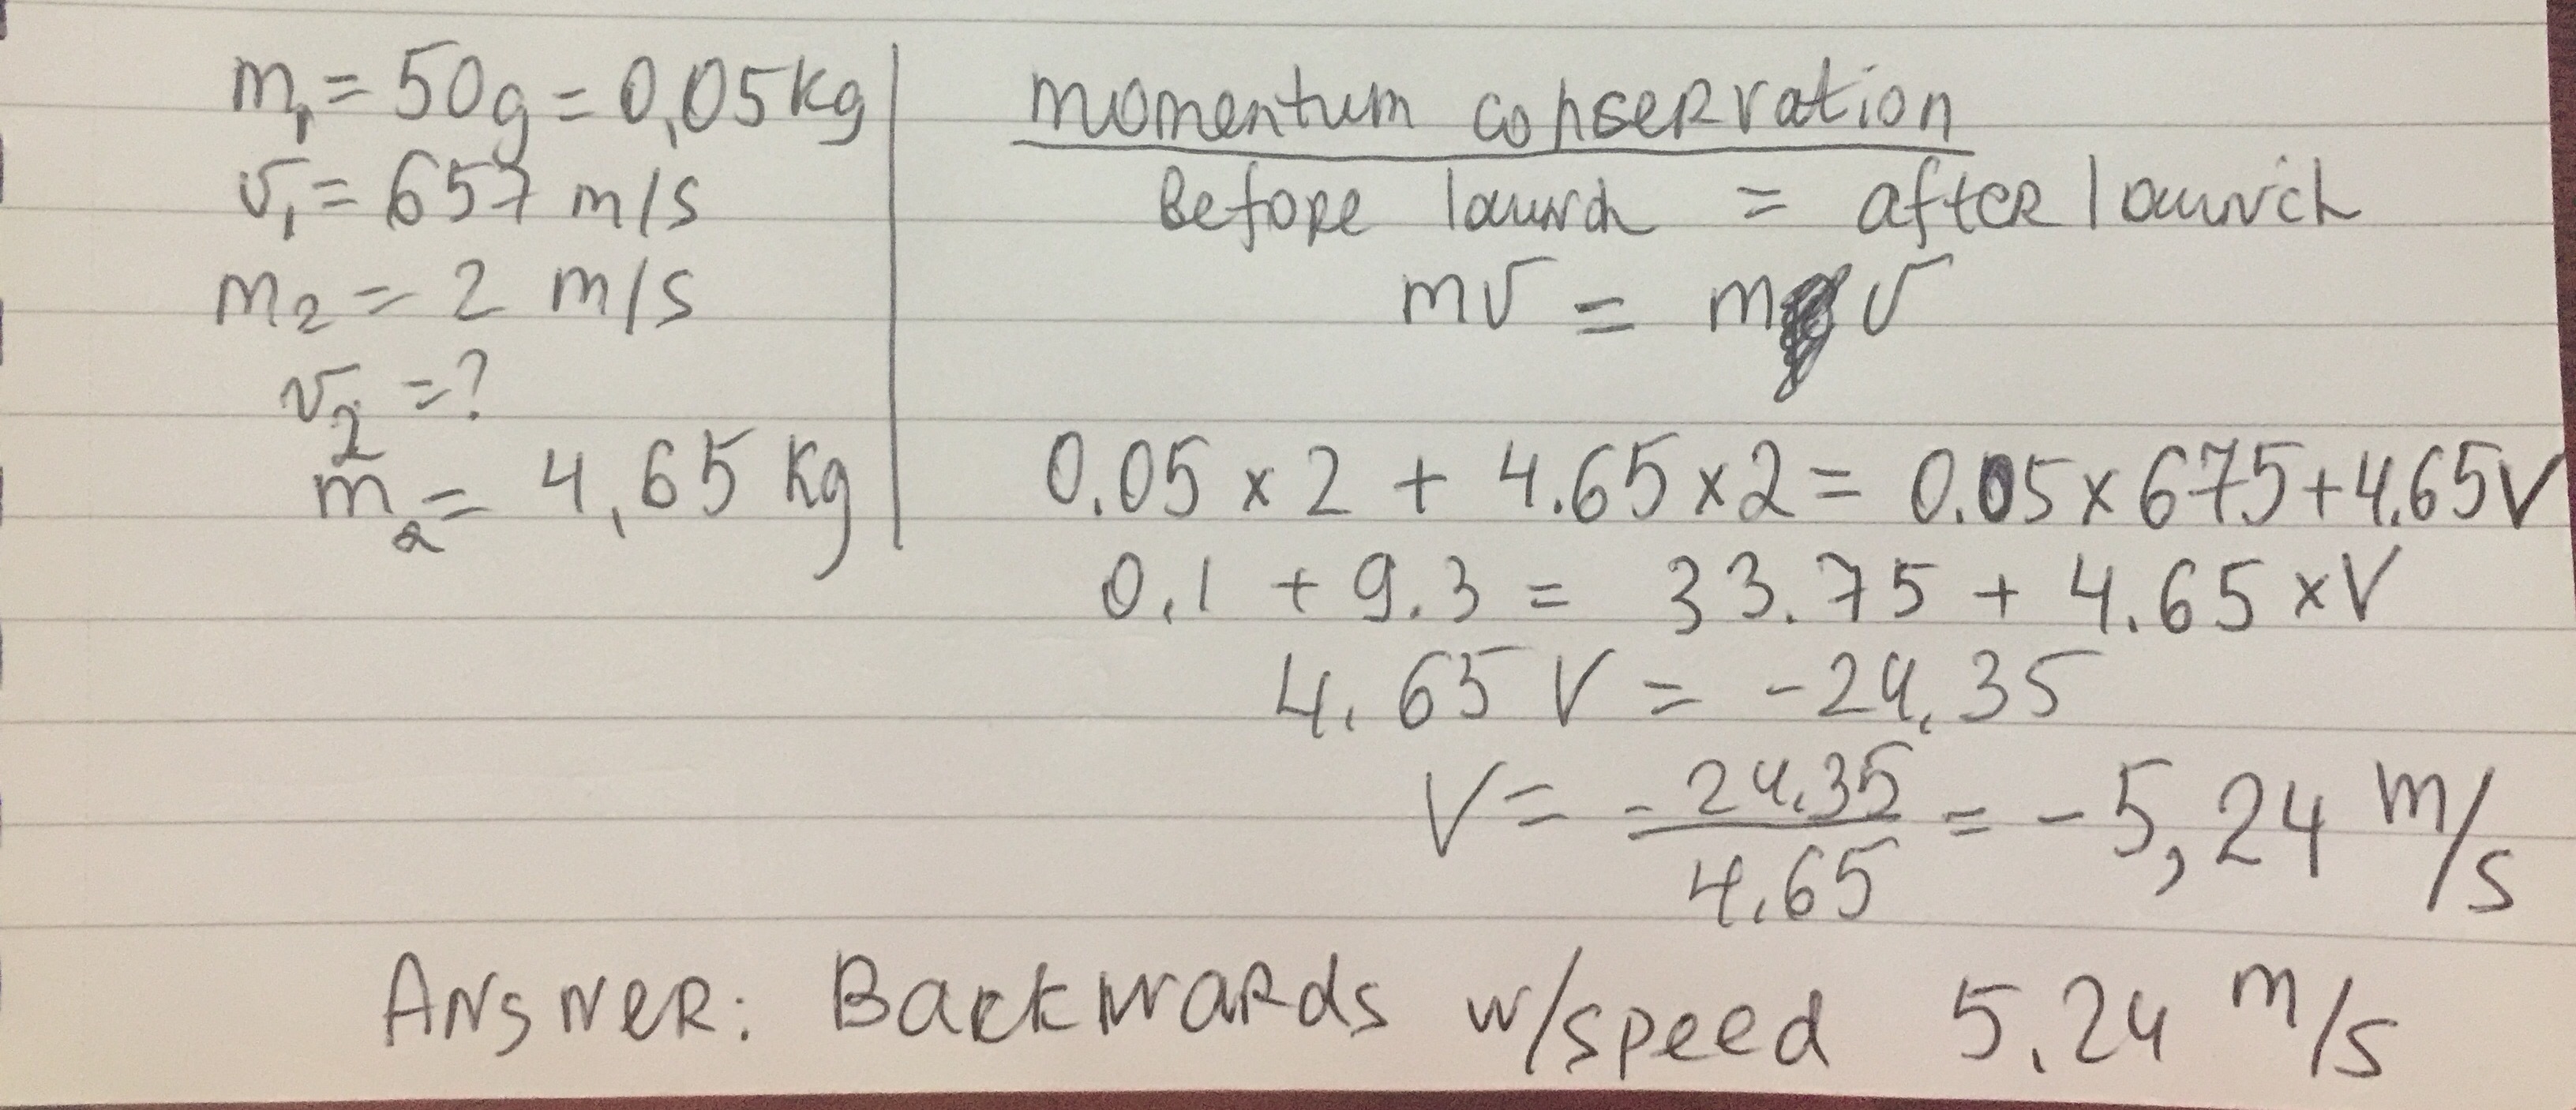 m₁ = 50g = 0,05kg
v₁ = 657 m/s
m₂ = 2 m/s
v₂ = ?
m₂ = 4,65 kg
momentum conservation
Before launch = after launch
mv = m v
0.05 × 2 + 4.65 × 2 = 0.05 × 675 + 4.65V
0.1 + 9.3 = 33.75 + 4.65 × V
4.65 V = -24.35
V = -24.35/4.65 = -5,24 m/s
Answer: Backwards w/speed 5.24 m/s